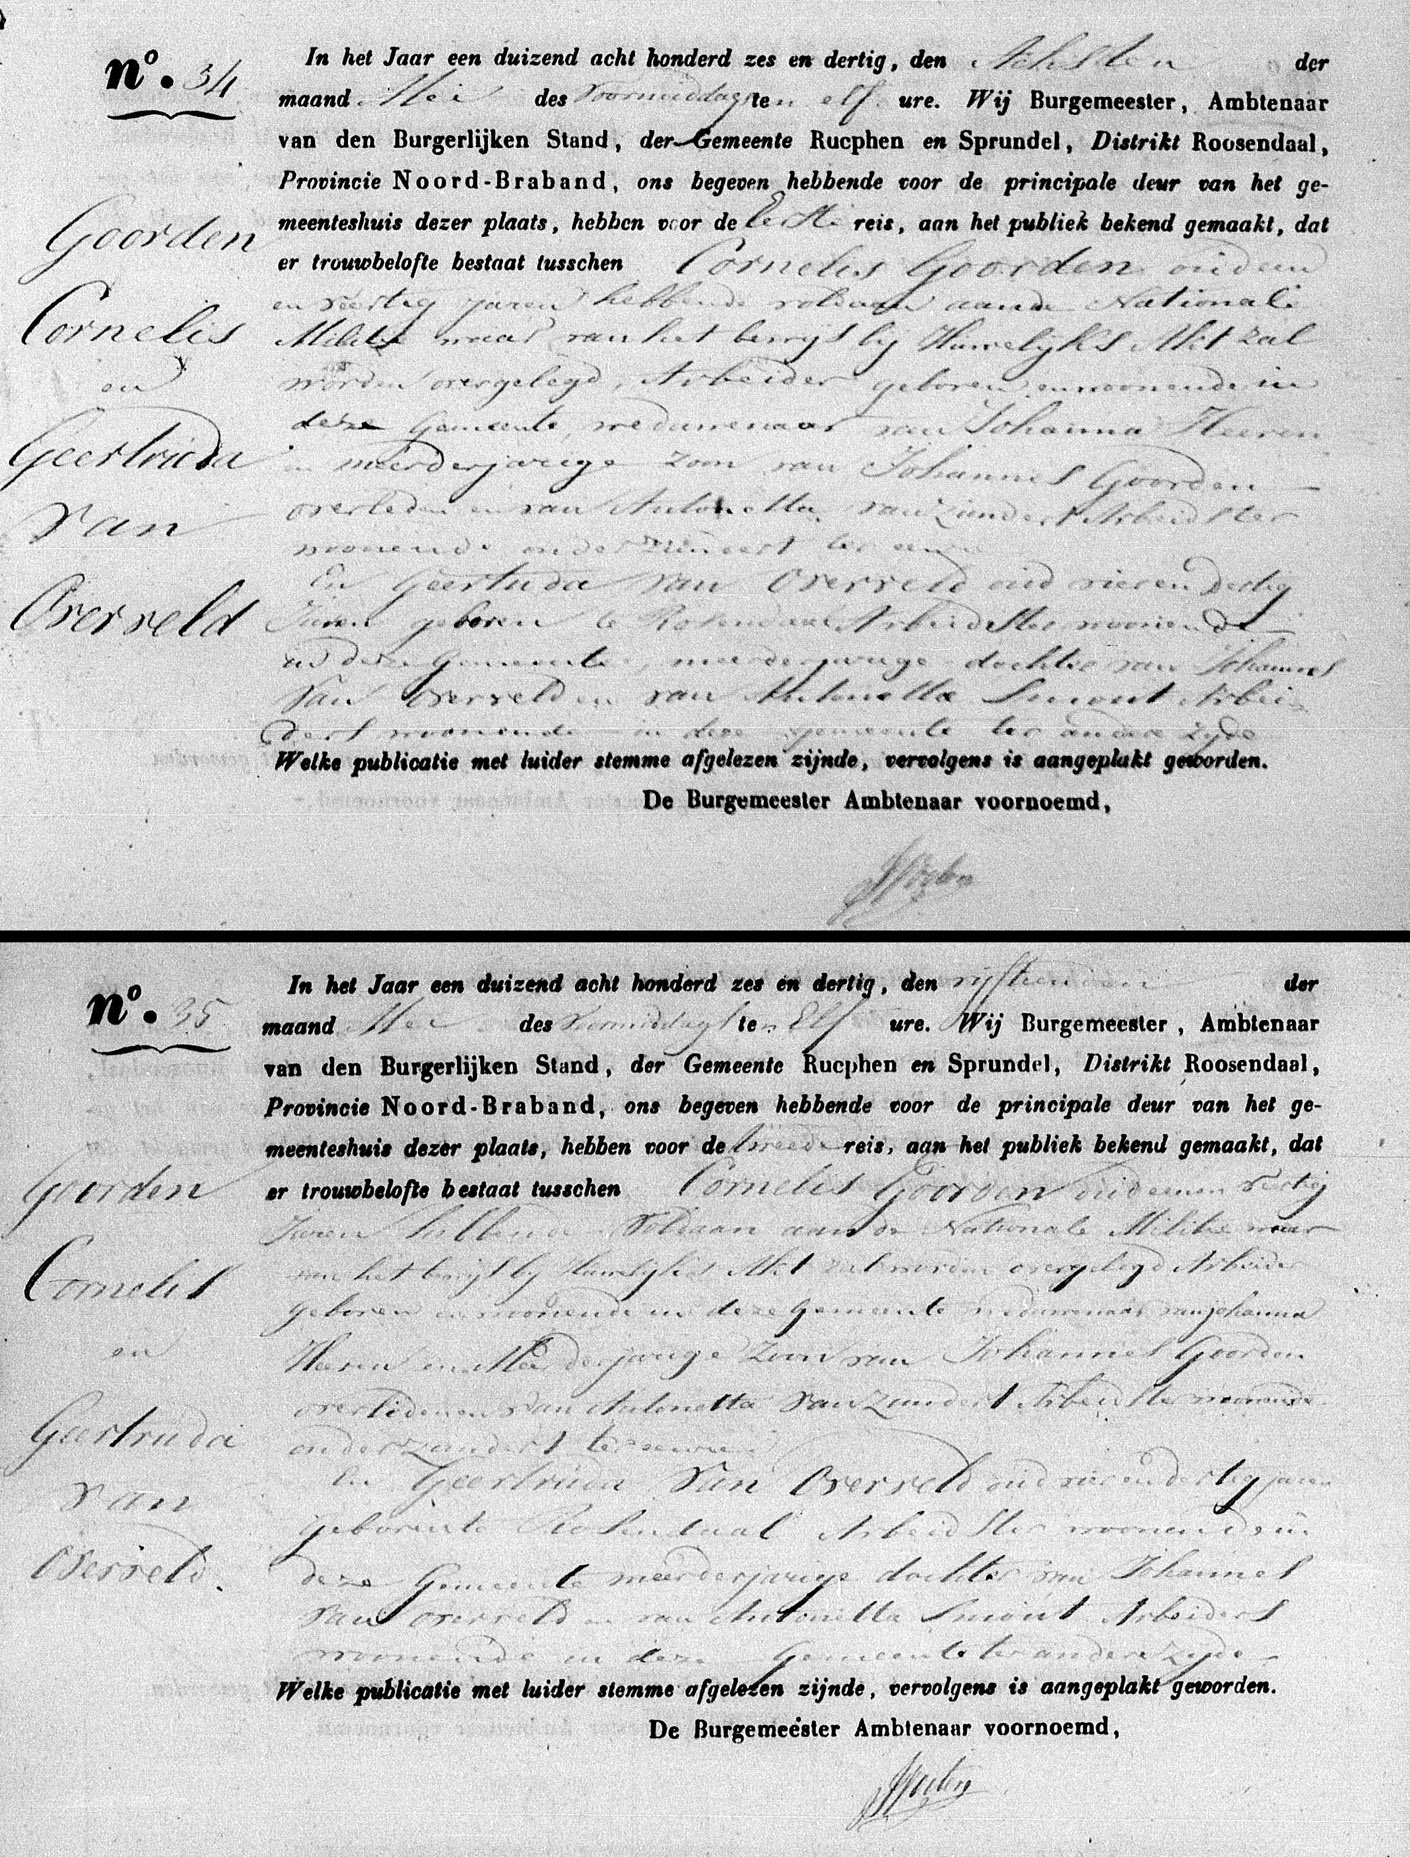 nº. 34
In het Jaar een duizend acht honderd zes en dertig, den Achsten der
maand Mei des voormiddags te elf ure. Wij Burgemeester, Ambtenaar
van den Burgerlijken Stand, der Gemeente Rucphen en Sprundel, Distrikt Roosendaal,
Provincie Noord-Braband, ons begeven hebbende voor de principale deur van het ge-
meenteshuis dezer plaats, hebben voor de Eerste reis, aan het publiek bekend gemaakt, dat
er trouwbelofte bestaat tusschen Cornelis Goorden oud een
en veertig jaren hebbende voldaan aan de Nationale
Militie waar van het bewijs bij Huwelijks Akt zal
worden overgelegd, Arbeider geboren en woonende in
deze Gemeente, weduwenaar van Johanna Heeren
en meerderjarige zoon van Johannes Goorden
overleden en van Antonetta van Zundert Arbeidster
woonende onder Zundert ter eenre
En Geertruda van Overveld oud vier en dertig
Jaren geboren te Rosendaal Arbeidster woonende
in deze Gemeente, meerderjarige dochter van Johannes
van Overveld en van Antonetta Smout Arbei
ders woonende in deze gemeente ter andere zyde
Welke publicatie met luider stemme afgelezen zijnde, vervolgens is aangeplakt geworden.
De Burgemeester Ambtenaar voornoemd,
Goorden
Cornelis
en
Geertruda
van
Overveld
nº. 35
In het Jaar een duizend acht honderd zes en dertig, den vijftienden der
maand Mei des voormiddags te Elf ure. Wij Burgemeester, Ambtenaar
van den Burgerlijken Stand, der Gemeente Rucphen en Sprundel, Distrikt Roosendaal,
Provincie Noord-Braband, ons begeven hebbende voor de principale deur van het ge-
meenteshuis dezer plaats, hebben voor de tweede reis, aan het publiek bekend gemaakt, dat
er trouwbelofte bestaat tusschen Cornelis Goorden oud eenen veertig
Jaren hebbende voldaan aan de Nationale Militie waar
van het bewijs bij Huwelijks Akt zal worden overgelegd Arbeider
geboren en woonende in deze Gemeente weduwenaar van Johanna
Heeren en Meerderjarige Zoon van Johannes Goorden
overleden en van Antonetta van Zundert Arbeidster woonende
onder Zundert ter eenre
En Geertruda van Overveld oud vier en dertig jaren
geboren te Rosendaal Arbeidster woonende in
deze Gemeente meerderjarige dochter van Johannes
van Overveld en van Antonetta Smout Arbeiders
woonende in deze Gemeente ter andere zyde
Welke publicatie met luider stemme afgelezen zijnde, vervolgens is aangeplakt geworden.
De Burgemeester Ambtenaar voornoemd,
Goorden
Cornelis
en
Geertruda
van
Overveld.